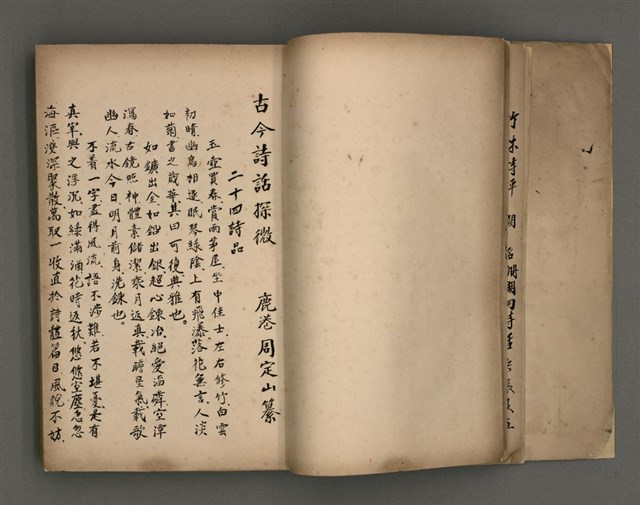 古今詩話探微　鹿港　周定山纂
二十四詩品
玉壺買春賞雨茅屋坐中佳士左右修竹白雲
初晴幽鳥相逐眠琴綠陰上有飛瀑落花無言人淡
如菊書之歲華其曰可復典雅也。
如鑛出金如鉛出銀超心鍊冶絕愛淄磷空潭
瀉春古鏡照神體素儲潔乘月返真載瞻星氣載歌
幽人流水今日明月前身洗鍊也。
不著一字盡得風流語不涉難若不堪憂是有
真宰與之浮沉如綠滿酒花時返秋悠悠空塵忽忽
海漚淺深聚散萬取一收直於詩體篇目風貌不妨